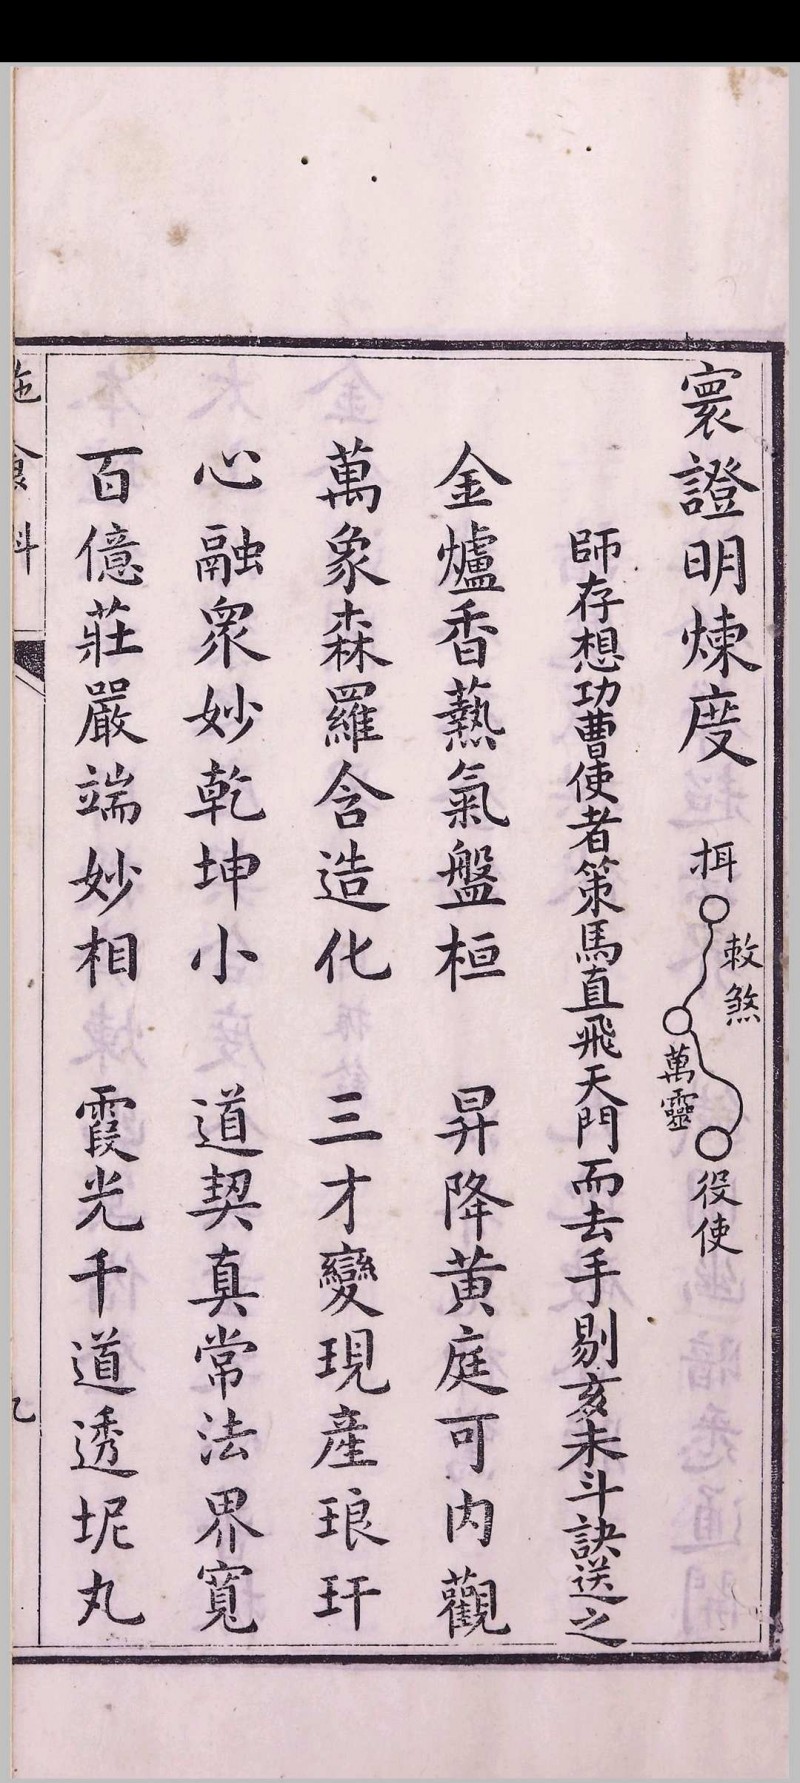 寰證明煉度
栮
敕煞
萬靈
役使
師存想功曹使者策馬直飛天門而去手剔亥未斗訣送之
金爐香爇氣盤桓 昇降黄庭可内觀
萬象森羅含造化 三才變現產琅玕
心融衆妙乾坤小 道契真常法界寬
百億莊嚴端妙相 霞光千道透坭丸